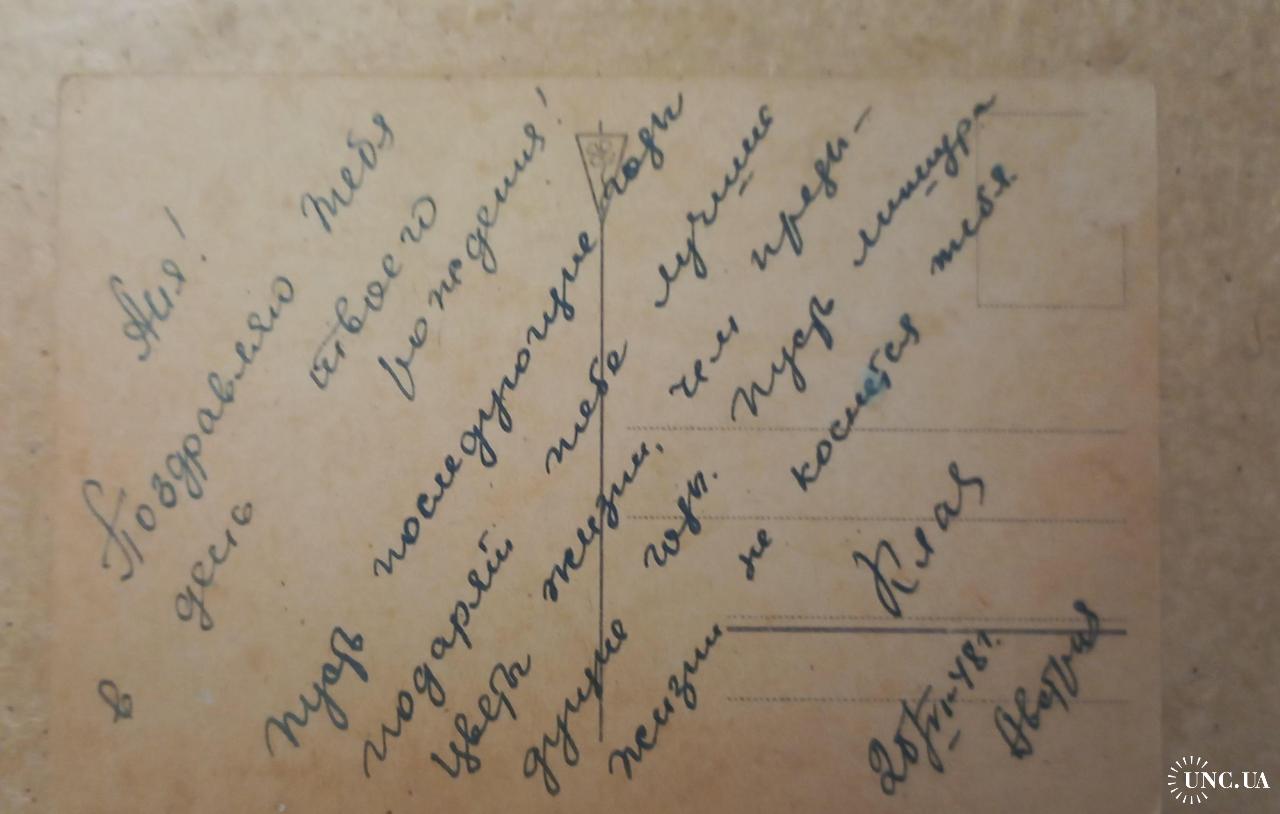 Ася!
Поздравляю тебя
в день твоего
рождения!
Пусть последующие годы
подарят тебе лучшие
цветы жизни, чем преды-
дущие годы. Пусть мишура
жизни не коснется тебя.
Клая
48 г.
UNC.UA